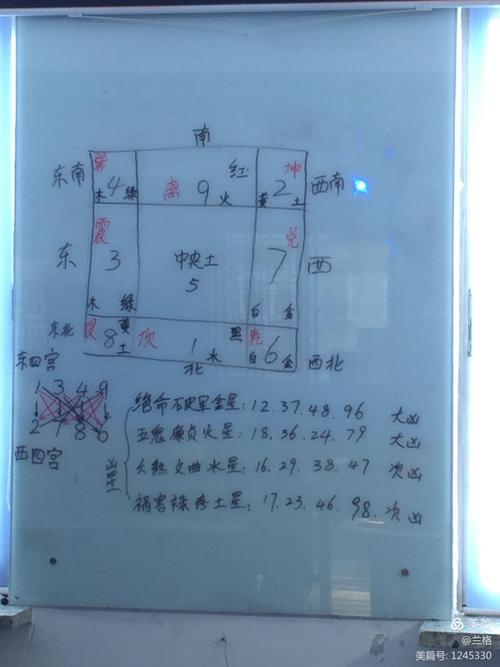 南
东南 巽 4 木 绿 离 9 红 火 坤 2 黄 土 西南
东 震 3 木 绿 中央土 5 兑 7 白 金 西
东北 艮 8 黄 土 坎 1 黑 水 乾 6 白 金 西北
北
东四宫
1 3 4 9
2 7 8 6
西四宫
凶星
绝命破军星金星：12.37.48.96 大凶
五鬼廉贞火星：18.36.24.79 大凶
六煞文曲水星：16.29.38.47 次凶
祸害禄存土星：17.23.46.98.次凶
美篇
@兰格
美篇号: 1245330